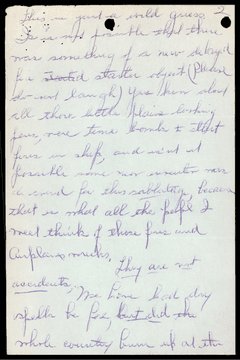 This is just a wild guess. 2
Is it not possible that there
was something of a new delayed
fire starter object (Please
do not laugh) You know about
all those little plain looking
pens, were time bombs to start
fires in ships, and isn't it
possible some new inventor was
a used for this sabotage, because
that is what all the people I
meet think of those fires and
Airplane wrecks,
They are not
accidents.
We have had dry
spells be for, but did the
whole country burn up at the